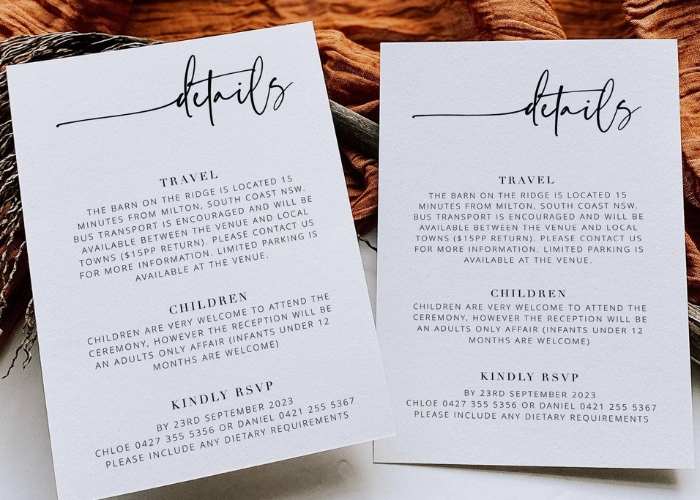 details
TRAVEL
THE BARN ON THE RIDGE IS LOCATED 15
MINUTES FROM MILTON, SOUTH COAST NSW.
BUS TRANSPORT IS ENCOURAGED AND WILL BE
AVAILABLE BETWEEN THE VENUE AND LOCAL
TOWNS ($15PP RETURN). PLEASE CONTACT US
FOR MORE INFORMATION. LIMITED PARKING IS
AVAILABLE AT THE VENUE.
CHILDREN
CHILDREN ARE VERY WELCOME TO ATTEND THE
CEREMONY, HOWEVER THE RECEPTION WILL BE
AN ADULTS ONLY AFFAIR (INFANTS UNDER 12
MONTHS ARE WELCOME)
KINDLY RSVP
BY 23RD SEPTEMBER 2023
CHLOE 0427 355 5356 OR DANIEL 0421 255 5367
PLEASE INCLUDE ANY DIETARY REQUIREMENTS
details
TRAVEL
THE BARN ON THE RIDGE IS LOCATED 15
MINUTES FROM MILTON, SOUTH COAST NSW.
BUS TRANSPORT IS ENCOURAGED AND WILL BE
AVAILABLE BETWEEN THE VENUE AND LOCAL
TOWNS ($15PP RETURN). PLEASE CONTACT US
FOR MORE INFORMATION. LIMITED PARKING IS
AVAILABLE AT THE VENUE.
CHILDREN
CHILDREN ARE VERY WELCOME TO ATTEND THE
CEREMONY, HOWEVER THE RECEPTION WILL BE
AN ADULTS ONLY AFFAIR (INFANTS UNDER 12
MONTHS ARE WELCOME)
KINDLY RSVP
BY 23RD SEPTEMBER 2023
CHLOE 0427 355 5356 OR DANIEL 0421 255 5367
PLEASE INCLUDE ANY DIETARY REQUIREMENTS